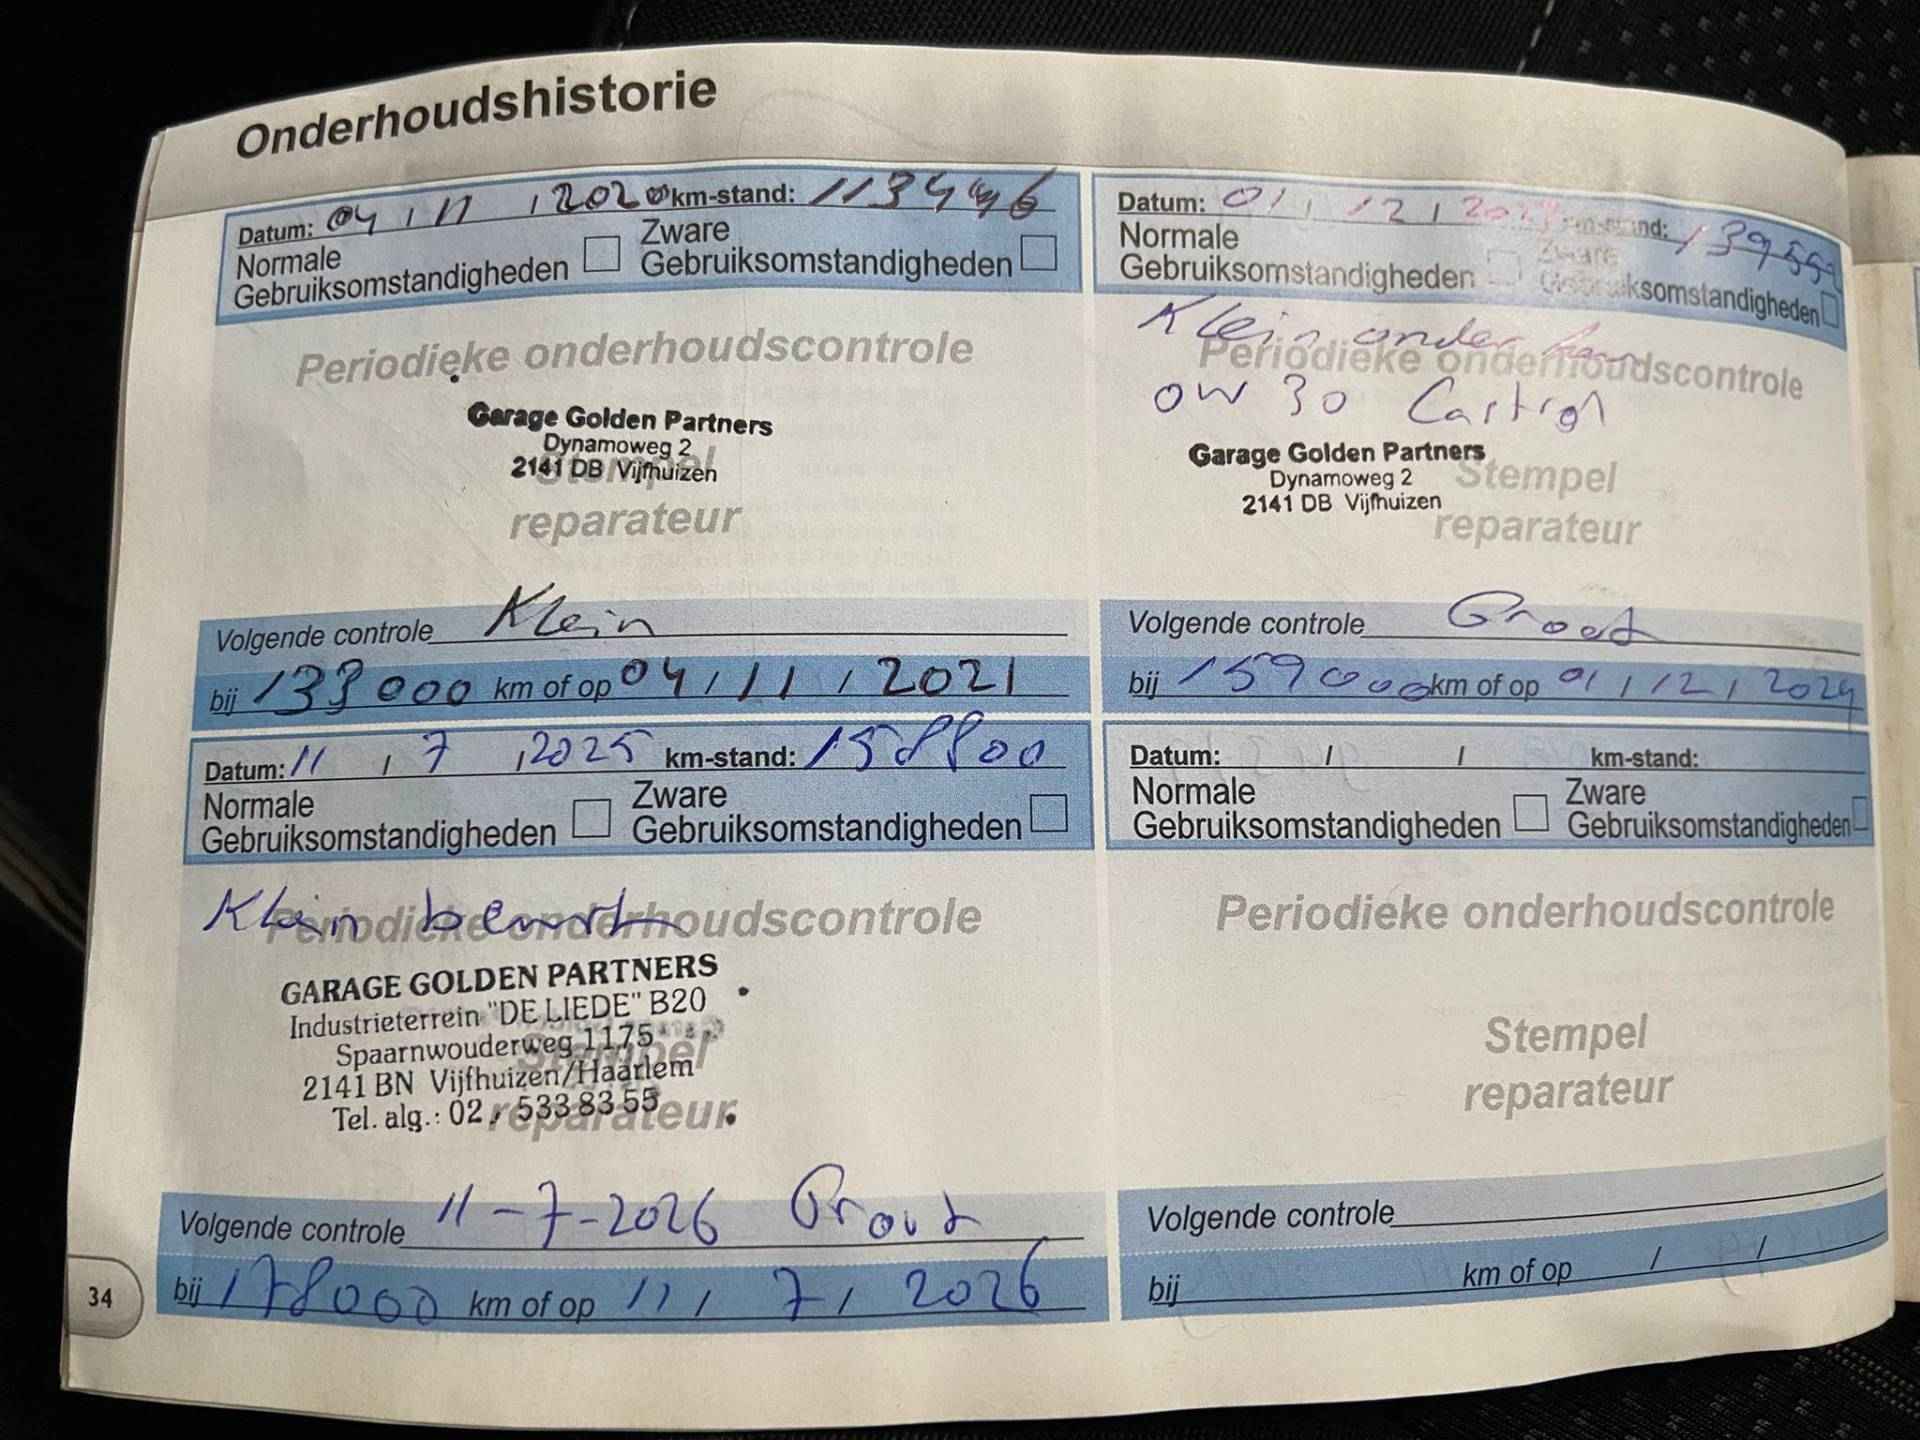 Onderhoudshistorie
Datum: 04 / 11 / 2020 km-stand: 113446
Normale Zware
Gebruiksomstandigheden Gebruiksomstandigheden
Periodieke onderhoudscontrole
Garage Golden Partners
Dynamoweg 2
2141 DB Vijfhuizen
Stempel
reparateur
Volgende controle Klein
bij 133000 km of op 04 / 11 / 2021
Datum: 01 / 12 / km-stand: 13955
Normale Zware
Gebruiksomstandigheden Gebruiksomstandigheden
Klein onder
Periodieke onderhoudscontrole
0W 30 Castrol
Garage Golden Partners
Dynamoweg 2
2141 DB Vijfhuizen
Stempel
reparateur
Volgende controle Groot
bij 159000 km of op 01 / 12 / 2024
Datum: 11 / 7 / 2025 km-stand: 158800
Normale Zware
Gebruiksomstandigheden Gebruiksomstandigheden
Klein beurt
Periodieke onderhoudscontrole
GARAGE GOLDEN PARTNERS
Industrieterrein "DE LIEDE" B20
Spaarnwouderweg 1175
Stempel
2141 BN Vijfhuizen/Haarlem
Tel. alg.: 02 533 83 55
reparateur
Volgende controle 11-7-2026 Groot
bij 178000 km of op 11 / 7 / 2026
Datum: / / km-stand:
Normale Zware
Gebruiksomstandigheden Gebruiksomstandigheden
Periodieke onderhoudscontrole
Stempel
reparateur
Volgende controle
bij km of op / /
34